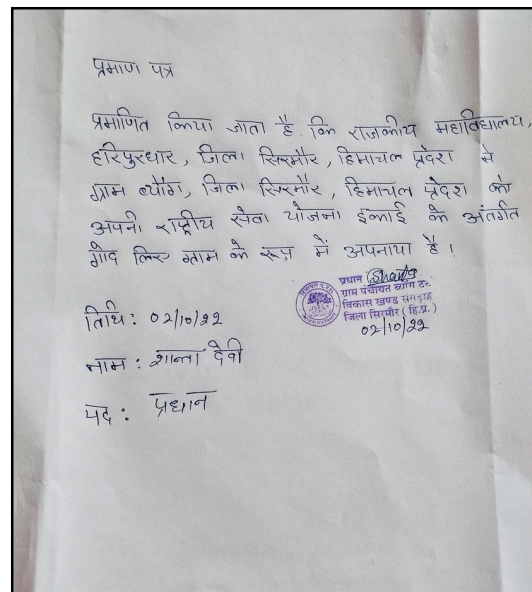 प्रमाण पत्र
प्रमाणित किया जाता है कि राजकीय महाविद्यालय,
हरिपुरधार, जिला सिरमौर, हिमाचल प्रदेश ने
ग्राम ब्योंग, जिला सिरमौर, हिमाचल प्रदेश को
अपनी राष्ट्रीय सेवा योजना इकाई के अंतर्गत
गोद लिए ग्राम के रूप में अपनाया है।
प्रधान Shanta
ग्राम पंचायत ब्योंग
विकास खण्ड संगड़ाह
जिला सिरमौर (हि.प्र.)
02/10/22
तिथि: 02/10/22
नाम: शान्ता देवी
पद: प्रधान